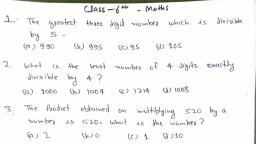 Class-6th - Maths
1. The greatest three digit number which is divisible
by 5 -
(a) 990 (b) 995 (c) 95 (d) 105
2. What is the least number of 4 digits exactly
divisible by 4?
(a) 1000 (b) 1004 (c) 1214 (d) 1008
3. The Product obtained on multiplying 520 by a
number is 520. What is the number?
(a) 2 (b) 0 (c) 1 (d) 10